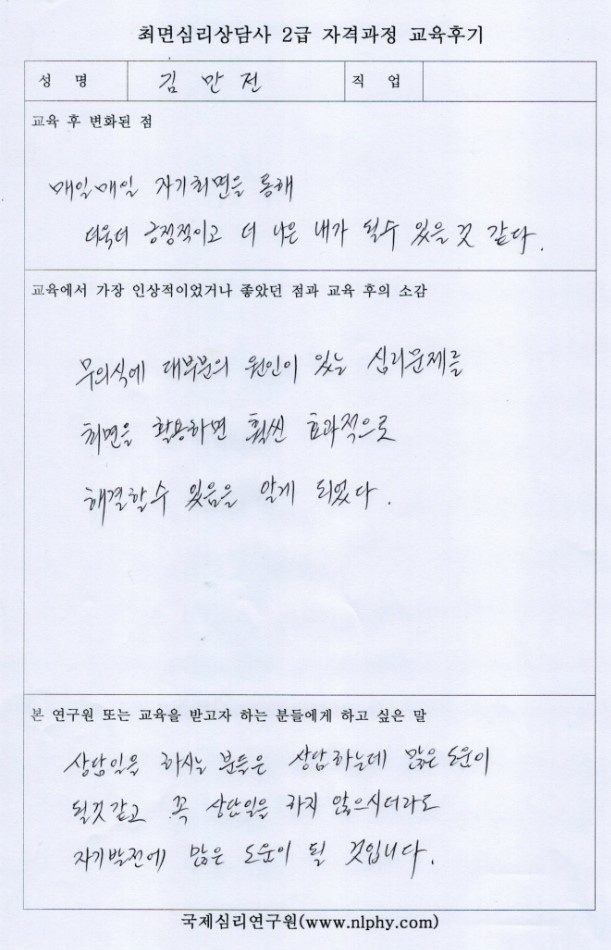 최면심리상담사 2급 자격과정 교육후기
성 명 김만전 직 업
교육 후 변화된 점
매일매일 자기최면을 통해
더욱더 긍정적이고 더 나은 내가 될수 있을것 같다.
교육에서 가장 인상적이었거나 좋았던 점과 교육 후의 소감
무의식에 대부분의 원인이 있는 심리문제를
최면을 활용하면 훨씬 효과적으로
해결할수 있음을 알게 되었다.
본 연구원 또는 교육을 받고자 하는 분들에게 하고 싶은 말
상담일을 하시는 분들은 상담하는데 많은 도움이
될것같고 꼭 상담일을 하지 않으시더라도
자기발전에 많은 도움이 될 것입니다.
국제심리연구원(www.nlphy.com)